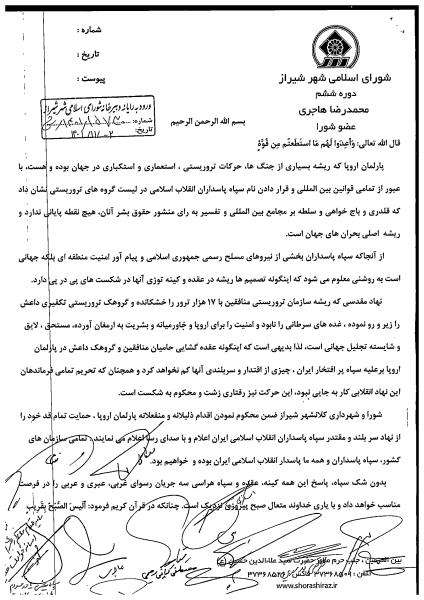 شماره :
تاریخ :
پیوست :
شورای اسلامی شهر شیراز
دوره ششم
محمدرضا هاجری
عضو شورا
ورود به رایانه دبیرخانه شورای اسلامی شهر شیراز
شماره:
تاریخ:
بسم الله الرحمن الرحیم
قال الله تعالی: وَأَعِدُّوا لَهُم مَا اسْتَطَعْتُم مِن قُوَّةٍ
پارلمان اروپا که ریشه بسیاری از جنگ ها، حرکات تروریستی ، استعماری و استکباری در جهان بوده و هست، با
عبور از تمامی قوانین بین المللی و قرار دادن نام سپاه پاسداران انقلاب اسلامی در لیست گروه های تروریستی نشان داد
که قلدری و باج خواهی و سلطه بر مجامع بین المللی و تفسیر به رای منشور حقوق بشر آنان، هیچ نقطه پایانی ندارد و
ریشه اصلی بحران های جهان است.
از آنجاکه سپاه پاسداران بخشی از نیروهای مسلح رسمی جمهوری اسلامی و پیام آور امنیت منطقه ای بلکه جهانی
است به روشنی معلوم می شود که اینگونه تصمیم ها ریشه در عقده و کینه توزی آنها در شکست های پی در پی دارد.
نهاد مقدسی که ریشه سازمان تروریستی منافقین با ۱۷ هزار ترور را خشکانده و گروهک تروریستی تکفیری داعش
را زیر و رو نموده ، غده های سرطانی را نابود و امنیت را برای اروپا و خاورمیانه و بشریت به ارمغان آورده، مستحق ، لایق
و شایسته تجلیل جهانی است، لذا بدیهی است که اینگونه عقده گشایی حامیان منافقین و گروهک داعش در پارلمان
اروپا برعلیه سپاه پر افتخار ایران ، چیزی از اقتدار و سربلندی آنها کم نخواهد کرد و همچنان که تحریم تمامی فرماندهان
این نهاد انقلابی کار به جایی نبود، این حرکت نیز رفتاری زشت و محکوم به شکست است.
شورا و شهرداری کلانشهر شیراز ضمن محکوم نمودن اقدام ذلیلانه و منفعلانه پارلمان اروپا ، حمایت تمام قد خود را
از نهاد سر بلند و مقتدر سپاه پاسداران انقلاب اسلامی ایران اعلام و با صدای رسا اعلام می نمایند: تمامی سازمان های
کشور، سپاه پاسداران و همه ما پاسدار انقلاب اسلامی ایران بوده و خواهیم بود.
بدون شک سپاه، پاسخ این همه کینه، عقده و سپاه هراسی سه جریان رسوای غربی، عبری و عربی را در فرصت
مناسب خواهد داد و با یاری خداوند متعال صبح پیروزی نزدیک است. چنانکه در قرآن کریم فرمود: أَلَيْسَ الصُّبْحُ بِقَرِيبٍ
بین الحرمین ، جنب حرم مطهر حضرت سید علاءالدین حسین (ع)
www.shorashiraz.ir